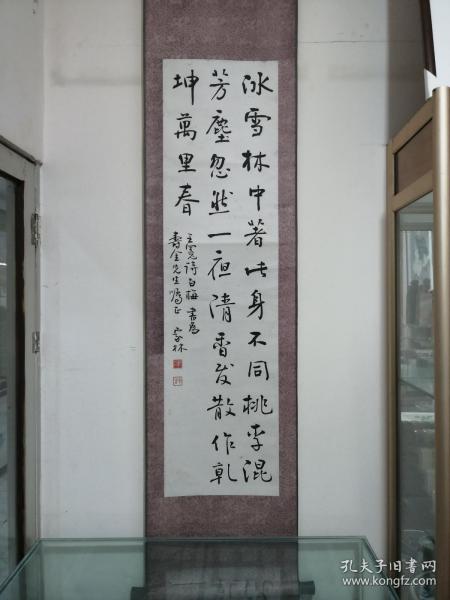 冰雪林中著此身不同桃李混
芳塵忽然一夜清香发散作乾
坤萬里春
王冕诗白梅 書為
壽全先生囑正 家林
孔夫子旧書网
www.kongfz.com